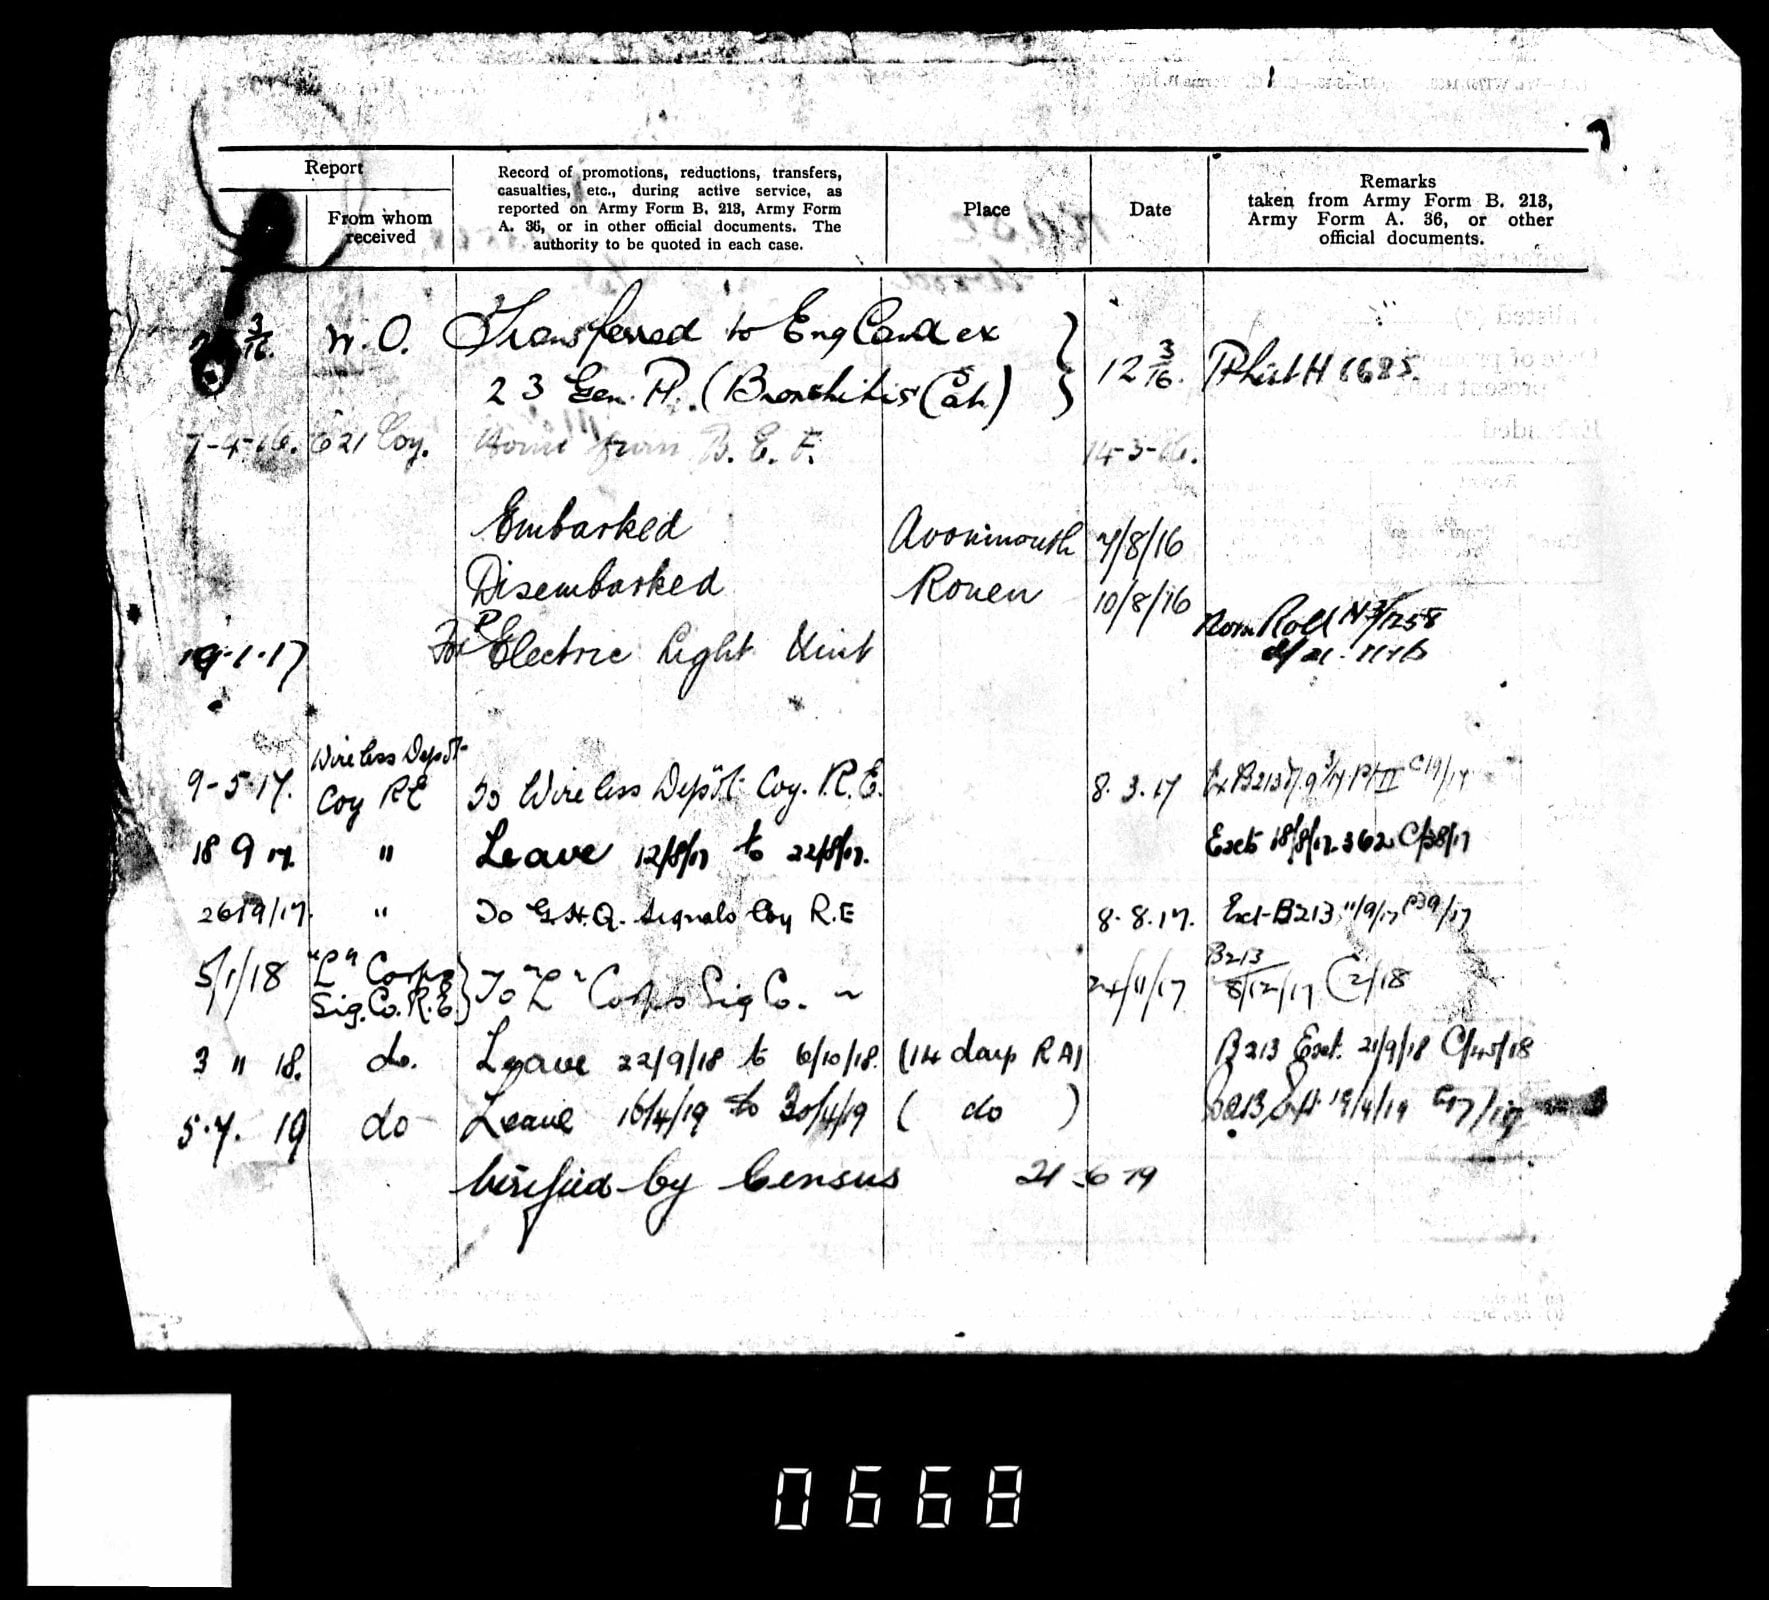 Report
From whom
received
Record of promotions, reductions, transfers,
casualties, etc., during active service, as
reported on Army Form B. 213, Army Form
A. 36, or in other official documents. The
authority to be quoted in each case.
Place
Date
Remarks
taken from Army Form B. 213,
Army Form A. 36, or other
official documents.
3/16. W.O. Transferred to England ex
23 Gen. H. (Bronchitis
12 3/16. H 6685.
7-4-16. 621 Coy. Home from B. E. F. 14-3-16.
Embarked Avonmouth 7/8/16
Disembarked Rouen 10/8/16
Nom Roll
1-17 Electric Light Unit
Wireless Depôt
9-5-17. Coy RE To Wireless Depôt Coy. R.E. 8.3.17
18 9 17. " Leave 12/8/17 to 22/8/17. Ext 18/8/17 362 C/38/17
26/9/17. " To G.H.Q. Signals Coy R.E 8.8.17. Ext-B213 11/9/17 C39/17
5/1/18 "L" Corps To "L" Corps Sig Co. ~ 24/11/17 B213
Sig. Co. R.E. 8/12/17 C2/18
3 11 18. do. Leave 22/9/18 to 6/10/18. (14 days RA) B213 Ext. 21/9/18 C/45/18
5.7. 19 do Leave 16/4/19 to 30/4/19 ( do ) 19/4/19
Verified by Census 21 6 19
0668